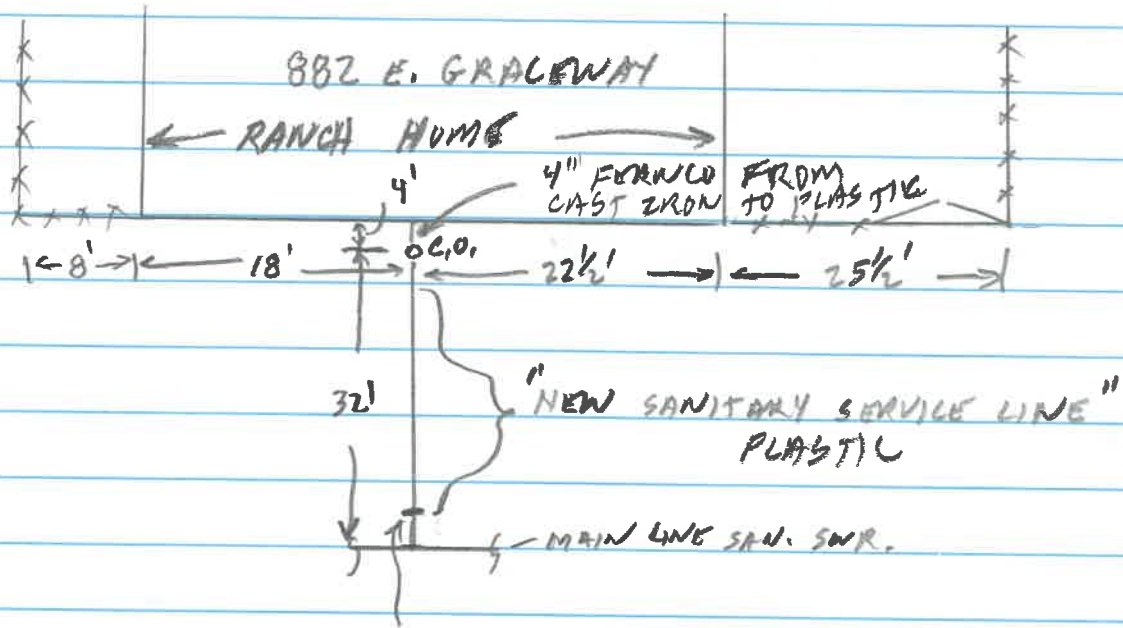 882 E. GRACEWAY
RANCH HOME
4" FERNCO FROM
CAST IRON TO PLASTIC
4'
C.O.
8'
18'
22 1/2'
25 1/2'
32'
"NEW SANITARY SERVICE LINE"
PLASTIC
MAIN LINE SAN. SWR.